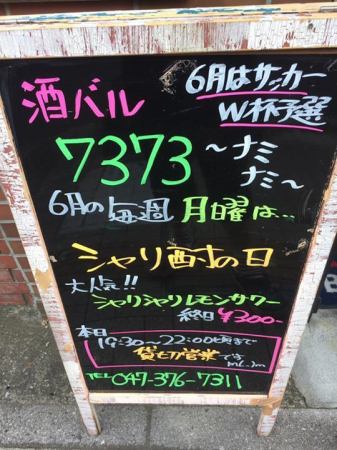 酒バル
6月はサッカー
W杯予選
7373 〜ナミ
ナミ〜
6月の毎週月曜は...
シャリ酎の日
大人気!!
シャリシャリレモンサワー
終日¥300-
本日
19:30〜22:00頃まで
貸切営業です
m(_)m
TEL 047-376-7311